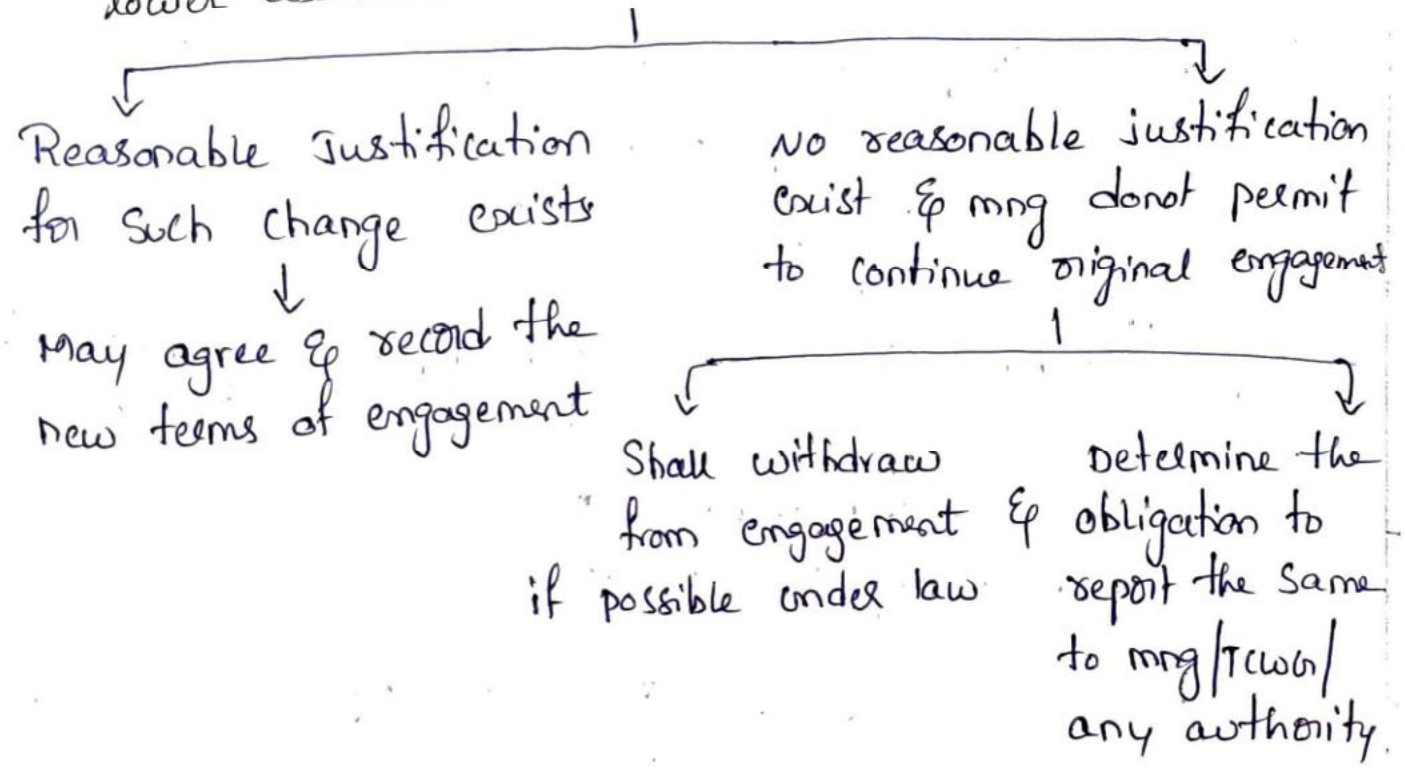 lower
Reasonable Justification
for Such Change exists
May agree & record the
new terms of engagement
No reasonable justification
exist & mng donot permit
to continue original engagement
Shall withdraw
from engagement &
if possible under law
Determine the
obligation to
report the same
to mng/TCWG/
any authority.